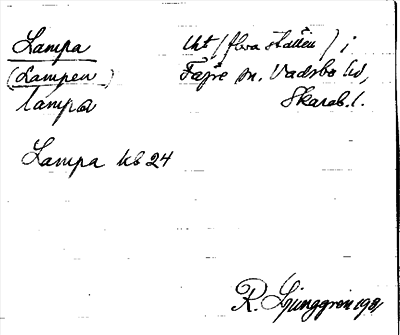 Lampa utt (flera ställen) ;
(Lampen) Fägre sn. Vadsbo hd,
lampa Skarab. l.
Lampa kb 24
R. Ljunggren 1981